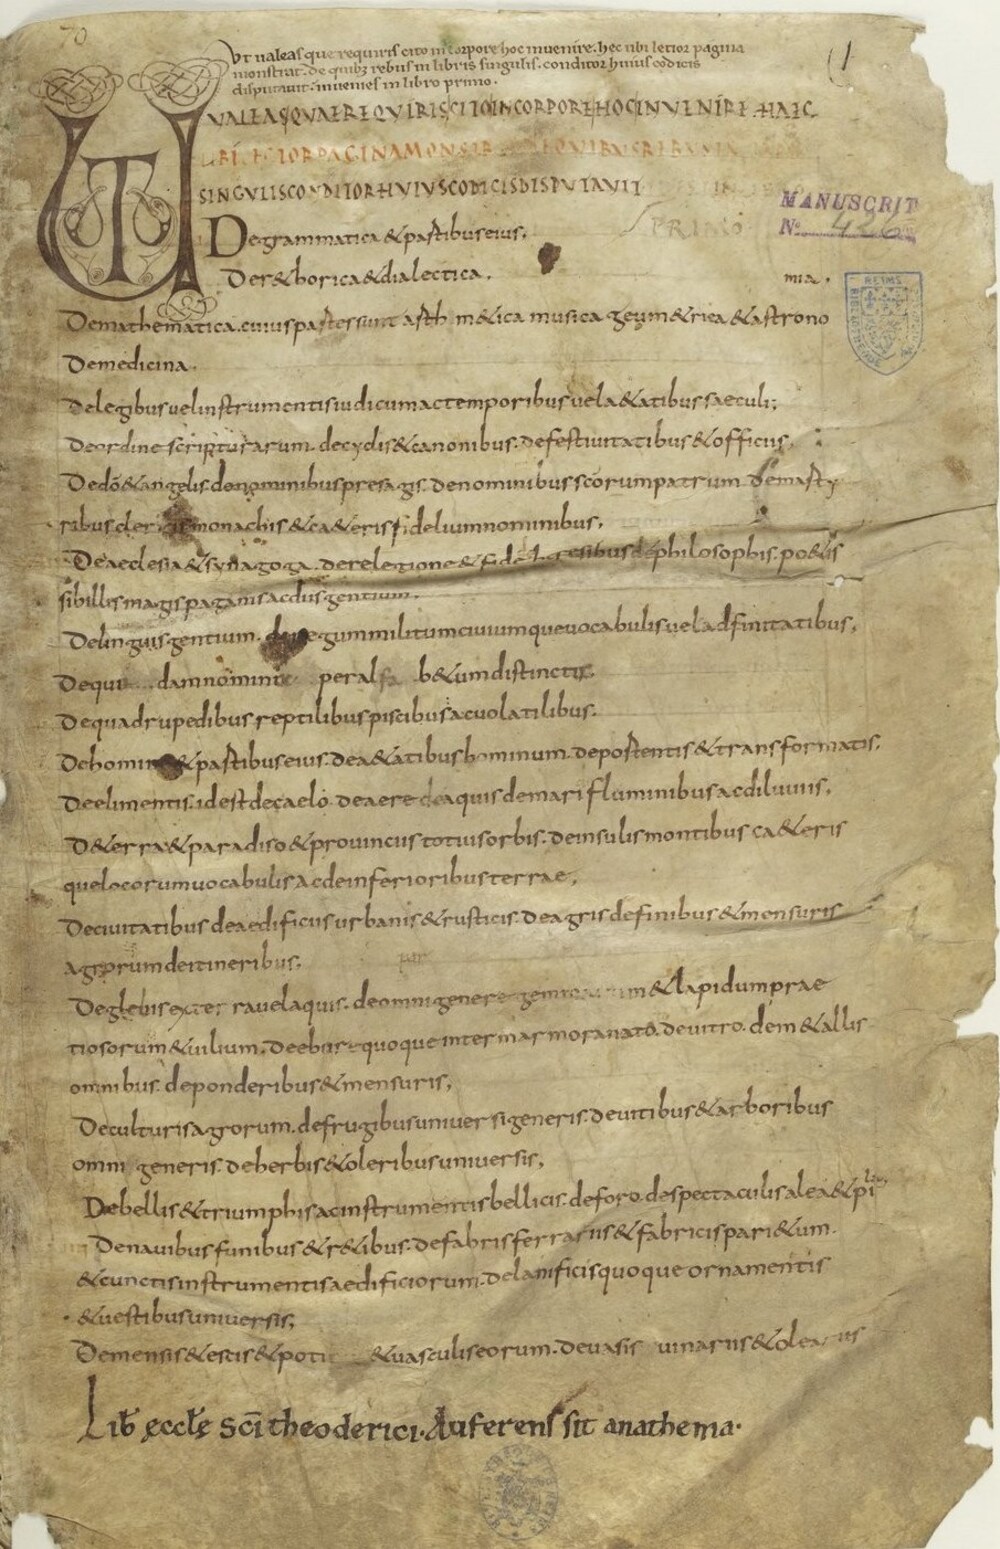 70
Ut valeas que requiris cito in corpore hoc invenire. hec tibi letior pagina
monstrat. de quibz rebus in libris singulis. conditor huius codicis
disputavit. invenies in libro primo.
(1
UT VALEAS QUAE REQVIRIS CITO IN CORPORE HOC INVENIRE. HAEC
TIBI LETIOR PAGINA MONSTRAT DE QVIBVS REBVS IN
SINGVLIS CONDITOR HVIVS CODICIS DISPVTAVIT
PRIMO
MANUSCRIT
No 426
De grammatica & partibus eius.
De r&horica & dialectica.
mia.
REIMS
De mathematica. cuius partes sunt arithm&ica musica geum&rica & astrono
De medicina.
De legibus vel instrumentis iudicum ac temporibus vel a&atibus saeculi;
De ordine scripturarum. de cyclis & canonibus. de festivitatibus & officiis.
De dõ & angelis. de nominibus presagis. de nominibus scorum patrum. de marty
ribus clericis monachis & ca&eris fidelium nominibus.
De aeclesia & synagoga. de relegione & fide. de heresibus. de philosophis. po&is
sibillis magis paganis ac diis gentium.
De linguis gentium. de regum militum civiumque vocabulis vel adfinitatibus.
De qui damnominib per alfab&um distinctis.
De quadrupedibus reptilibus piscibus ac volatilibus.
De homine & partibus eius. de a&atibus hominum. de portentis & transformatis.
De elimentis. id est de caelo. de aere de aquis de mari fluminibus ac diluviis.
De t&erra & paradiso & provinciis totius orbis. de insulis montibus ca&eris
que locorum vocabulis ac de inferioribus terrae.
De civitatibus de aedificiis urbanis & rusticis. de agris de finibus & mensuris
agrorum de itineribus.
De glebis ex terra vel aquis. de omni genere gemmarum & lapidum prae
tiosorum & vilium. de ebore quoque inter marmora nato. de vitro. de m&allis
omnibus. de ponderibus & mensuris.
De culturis agrorum. de frugibus universi generis. de vitibus & arboribus
omni generis. de herbis & oleribus universis.
De bellis & triumphis ac instrumentis bellicis. de foro. de spectaculis alea & pila.
De navibus funibus & r&ibus. de fabris ferrariis & fabricis pari&um.
& cunctis instrumentis aedificiorum. de lanificiis quoque ornamentis
& vestibus universis.
De mensis & escis & potu & vasculis eorum. de vasis vinariis & oleariis
Lib̄ ęccłę Scī theoderici. Auferens sit anathema.